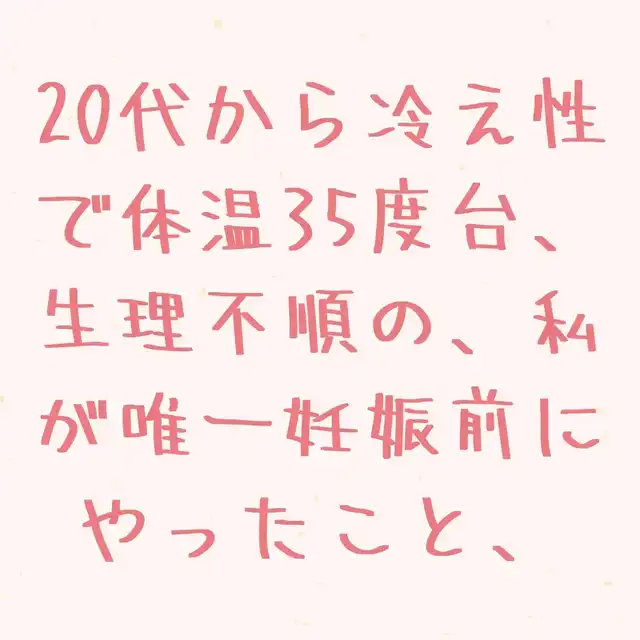 20代から冷え性
で体温35度台、
生理不順の、私
が唯一妊娠前に
やったこと、